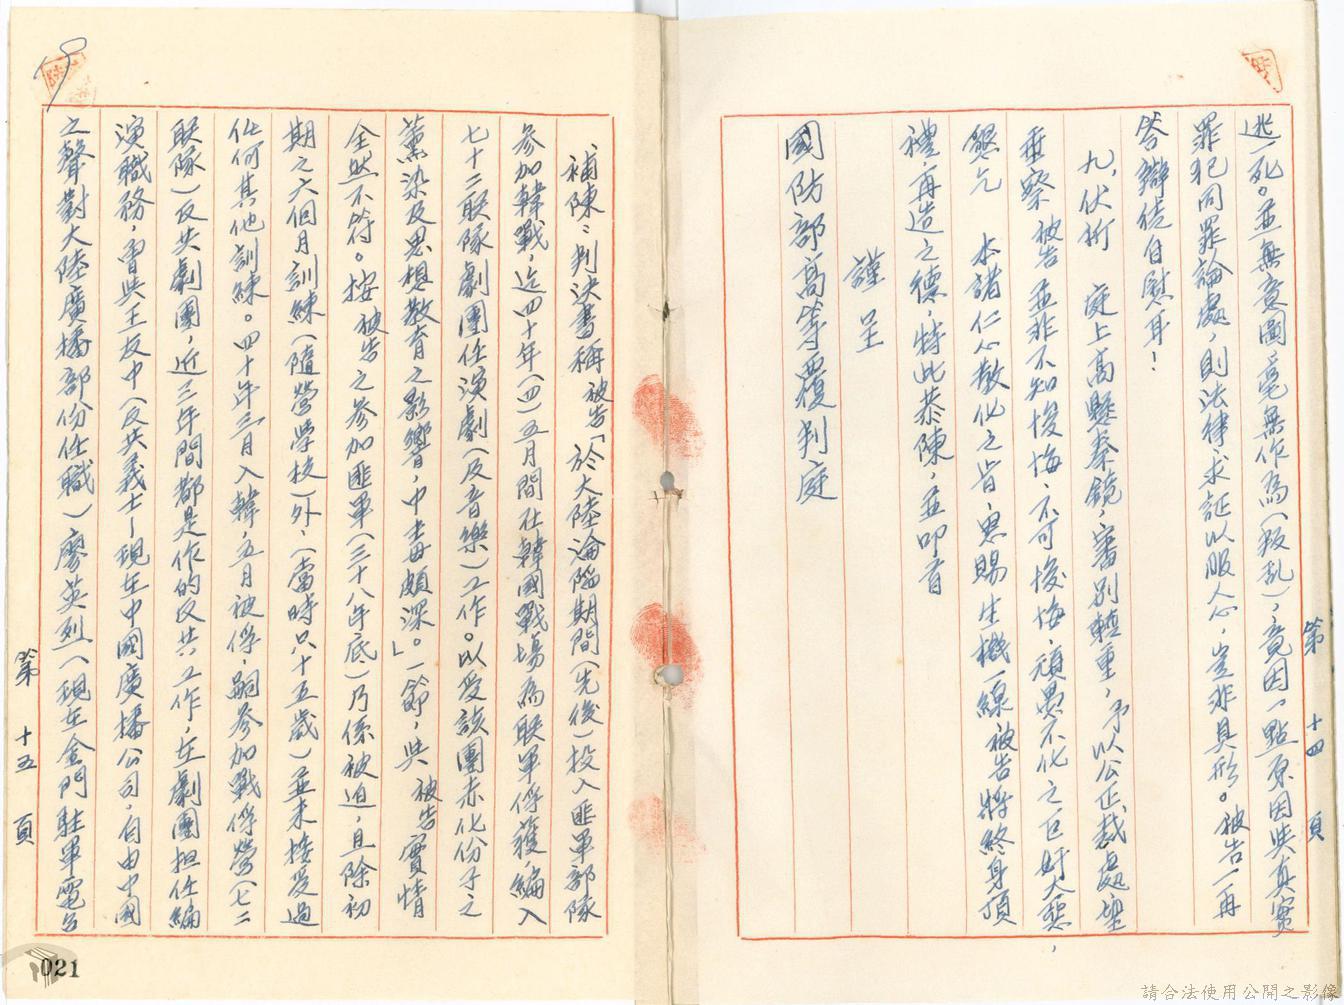 逃一死。並無意圖毫無作為(叛乱),竟因一點原因與真實
罪犯同罪論處,則法律求証以服人心,豈非具形。被告一再
答辯徒自慰耳!
九、伏祈 庭上高懸秦鏡,審別輕重,予以公正裁處
垂察 被告並非不知悛悔、不可悛悔、頑愚不化之巨奸大惡,
懇乞 本諸仁心教化之旨,惠賜生機一線,被告將終身頂
禮,再造之德,特此恭陳,並叩首
謹呈
國防部高等覆判庭
第 十四 頁
補陳:判決書稱被告「於大陸淪陷期間(先後)投入匪軍部隊
參加韓戰,迄四十年(四)五月間在韓國戰場為联軍俘獲,編入
七十二联隊劇團任演劇(及音樂)工作。以受該團赤化份子之
薰染及思想教育之影響,中毒頗深。」一節,與被告實情
全然不符。按被告之參加匪軍(三十八年底)乃係被迫,且除初
期之六個月訓練(隨營學校)外,(當時只十五歲)並未接受過
任何其他訓練。四十年三月入韓,五月被俘,嗣參加戰俘營(七二
联隊)反共劇團,近三年間都是作的反共工作,在劇團担任編
演職務,曾與王友中(反共義士—現在中國廣播公司,自由中國
之聲對大陸廣播部份任職)廖英烈(現在金門駐軍電台
第 十五 頁
021
請合法使用公開之影像